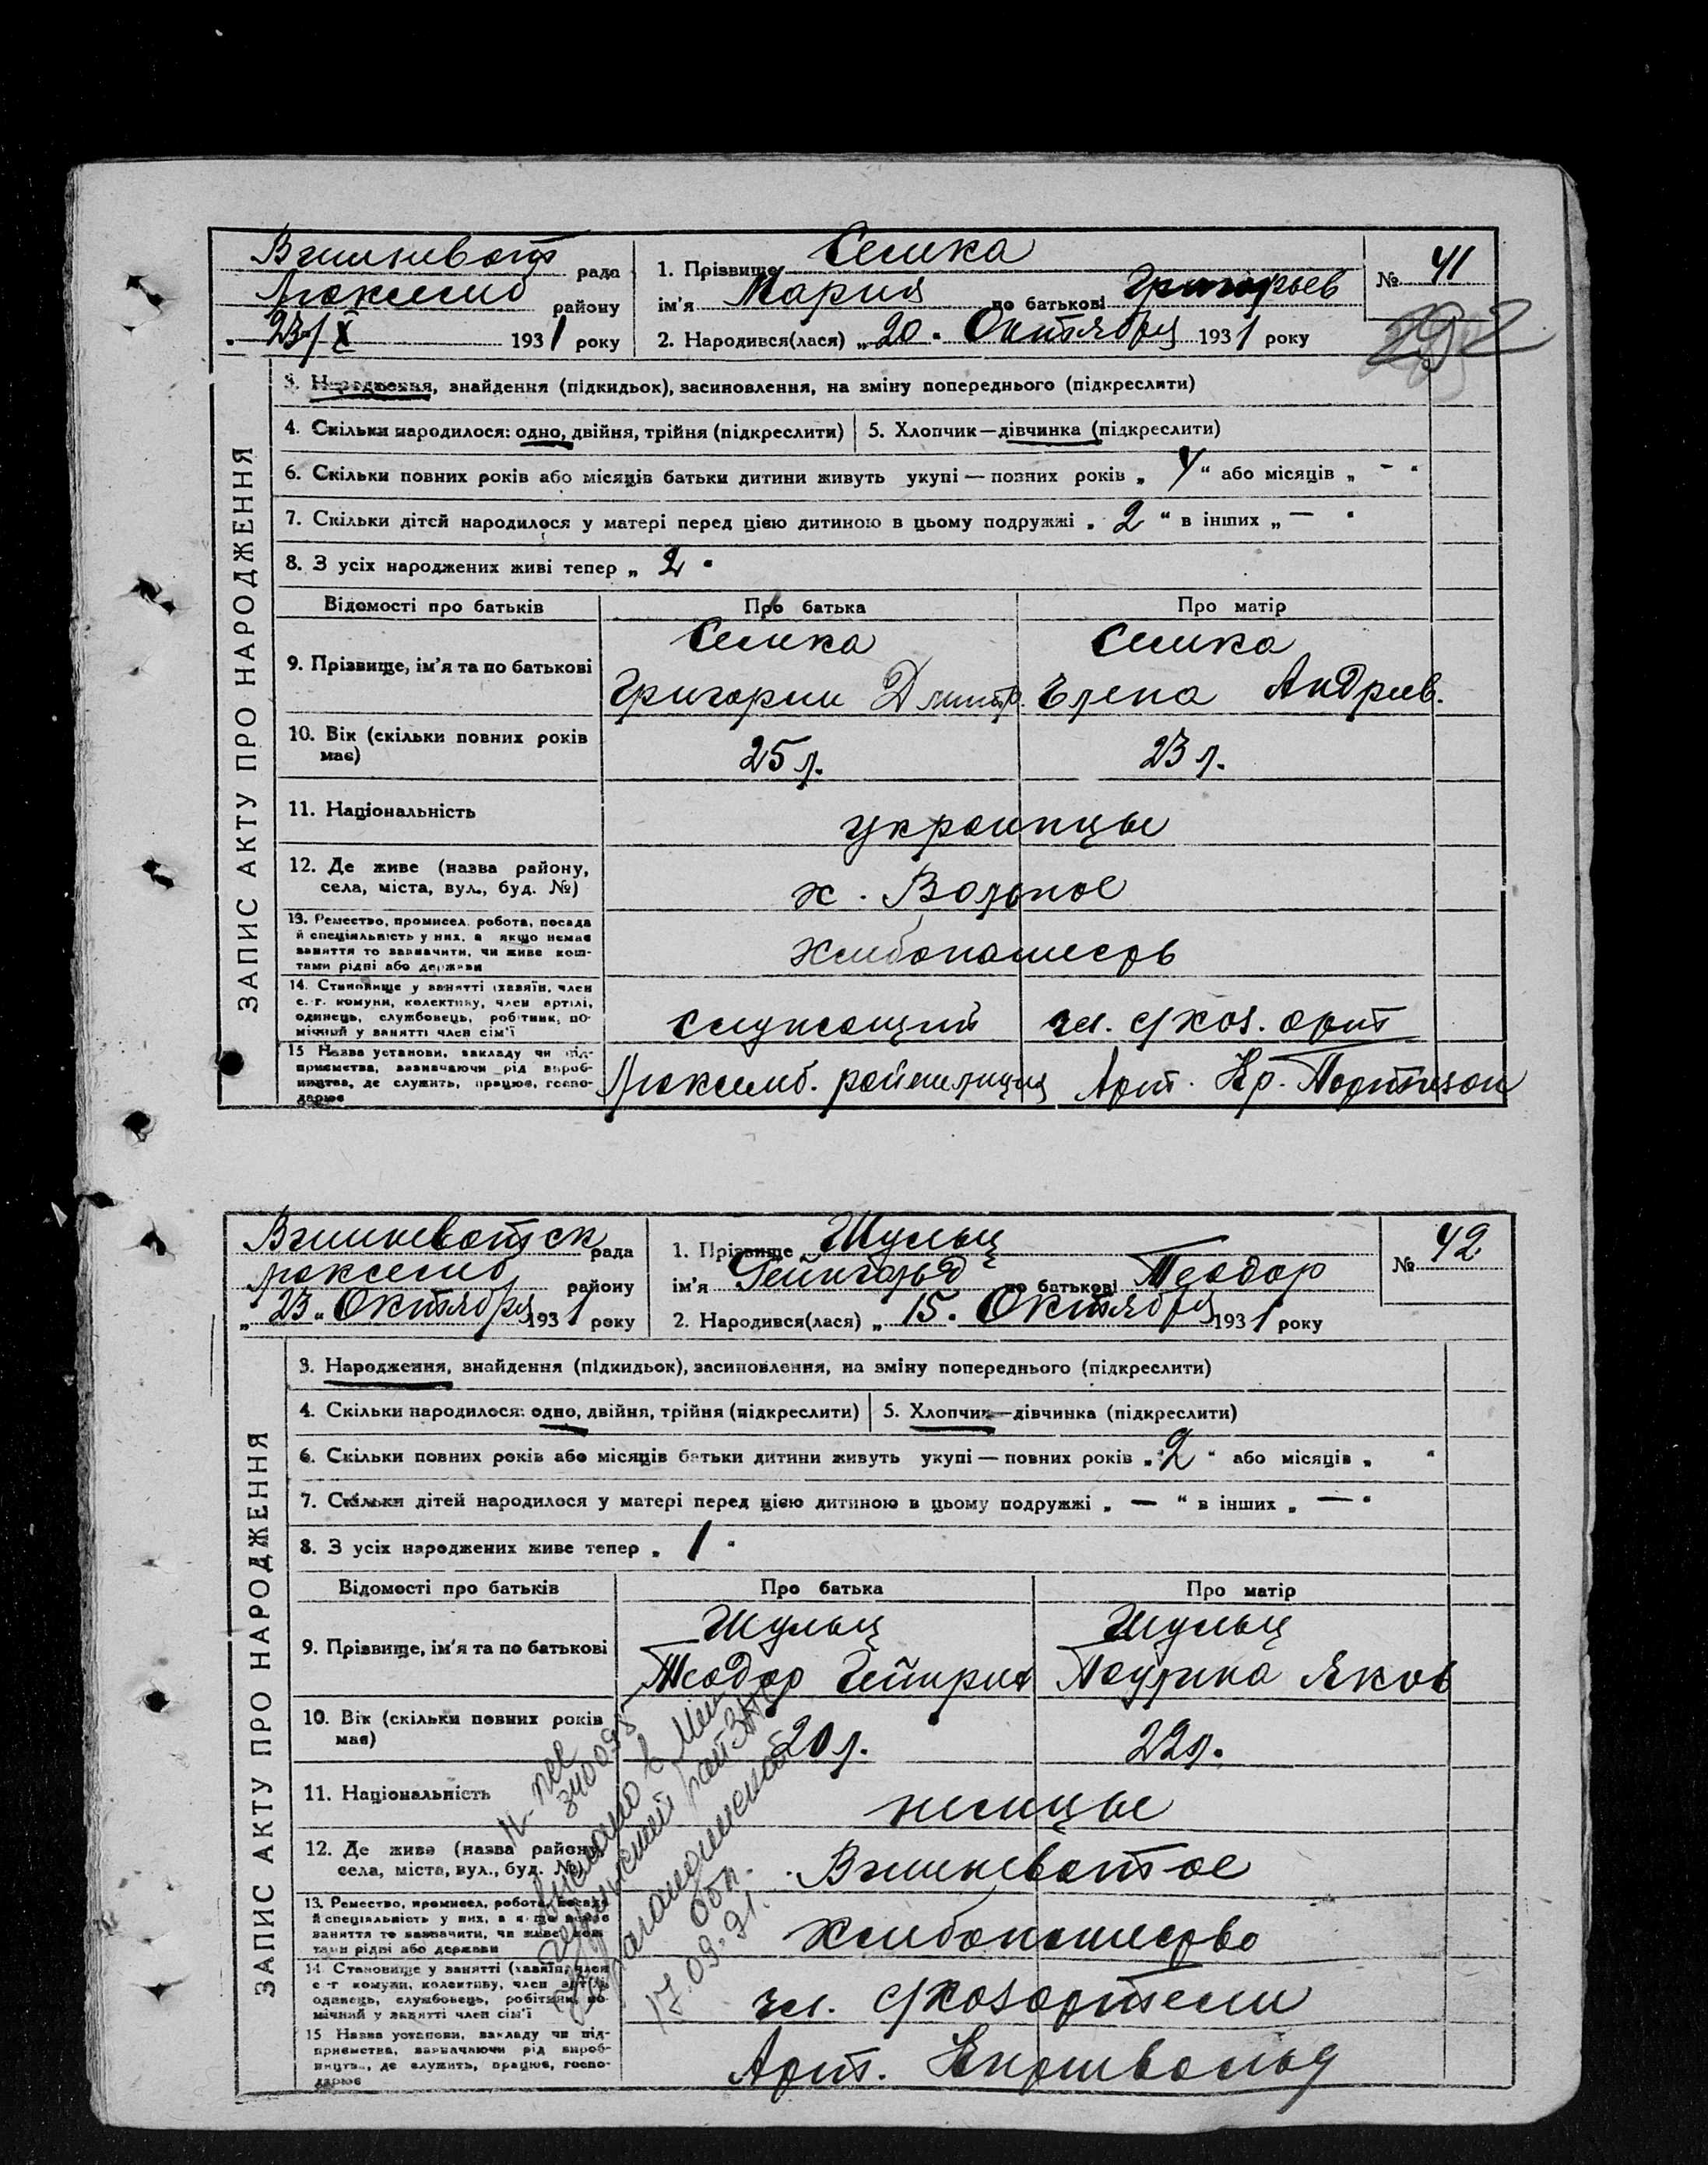 Вишневат рада
Люксемб району
23/X 1931 року
1. Прізвище Семка
ім'я Мария по батькові Григорьев
2. Народився(лася) „20" Октября 1931 року
№ 41
292
ЗАПИС АКТУ ПРО НАРОДЖЕННЯ
3. Народження, знайдення (підкидьок), засиновлення, на зміну попереднього (підкреслити)
4. Скільки народилося: одно, двійня, трійня (підкреслити) 5. Хлопчик—дівчинка (підкреслити)
6. Скільки повних років або місяців батьки дитини живуть укупі — повних років „ 4 " або місяців „ - "
7. Скільки дітей народилося у матері перед цією дитиною в цьому подружжі „ 2 " в інших „ — "
8. З усіх народжених живі тепер „ 2 "
Відомості про батьків Про батька Про матір
9. Прізвище, ім'я та по батькові
Семка Семка
Григории Дмитр. Елена Андреев.
10. Вік (скільки повних років має) 25 л. 23 л.
11. Національність украинцы
12. Де живе (назва району,
села, міста, вул., буд. №) х. Вольное
13. Ремество, промисел, робота, посада
й спеціяльність у них, а якщо немає
заняття то зазначити, чи живе кош-
тами рідні або держави
Хлибопашесрь
14. Становище у занятті (хазяїн, член
с.-г. комуни, колективу, член артілі,
одинець, службовець, робітник, по-
мічний у занятті член сім'ї
служащий чл. с/хоз. арт
15 Назва установи, закладу чи під-
приємства, зазначаючи рід вироб-
ництва, де служить, працює, госпо-
дарює
Люксемб. раймилиция Арт. Кр. Партизан
Вишневатск рада
Люксемб району
„23" Октября 1931 року
1. Прізвище Шульц
ім'я Гейнгольд по батькові Теодор
2. Народився(лася) „ 15. Октября 1931 року
№ 42
ЗАПИС АКТУ ПРО НАРОДЖЕННЯ
3. Народження, знайдення (підкидьок), засиновлення, на зміну попереднього (підкреслити)
4. Скільки народилося: одно, двійня, трійня (підкреслити) 5. Хлопчик—дівчинка (підкреслити)
6. Скільки повних років або місяців батьки дитини живуть укупі — повних років „ 2 " або місяців „ "
7. Скільки дітей народилося у матері перед цією дитиною в цьому подружжі „ — " в інших „ — "
8. З усіх народжених живе тепер „ 1 "
Відомості про батьків Про батька Про матір
9. Прізвище, ім'я та по батькові
Шульц Шульц
Теодор Гейнрих Паулина Яков
10. Вік (скільки повних років має) 20 л. 22 л.
11. Національність немцы
12. Де живе (назва району,
села, міста, вул., буд. №) Вишневатое
13. Ремество, промисел, робота, посада
й спеціяльність у них, а якщо немає
заняття то зазначити, чи живе кош-
тами рідні або держави
Хлибопашесрво
14 Становище у занятті (хазяїн, член
с.-г комуни, колективу, член артілі,
одинець, службовець, робітник, по-
мічний у занятті член сім'ї
чл. с/хозартели
15 Назва установи, закладу чи під-
приємства, зазначаючи рід вироб-
ництва, де служить, працює, госпо-
дарює
Арт. Киршвальд
выслано в
рай ЗАГС
Карагандинской
обл.
17.09.91.